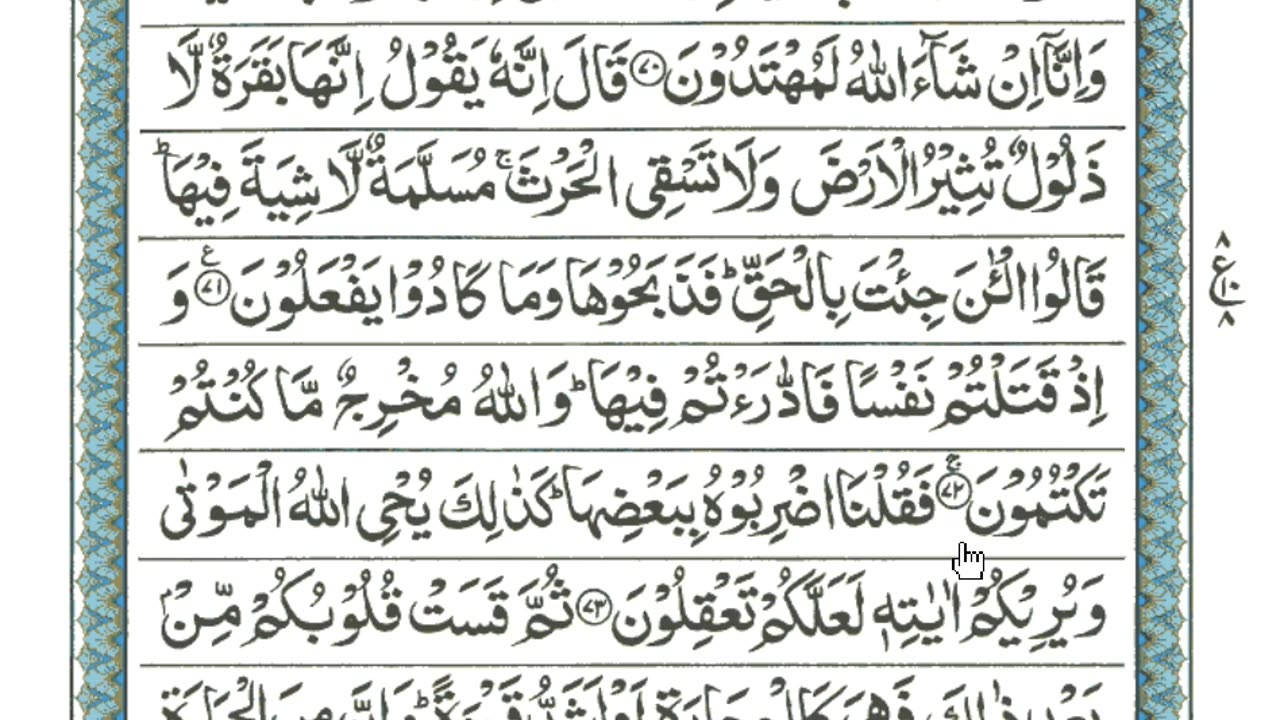 وَاِنَّاۤ اِنْ شَآءَ اللّٰهُ لَمُهْتَدُوْنَ ﴿۷۰﴾ قَالَ اِنَّهٗ يَقُوْلُ اِنَّهَا بَقَرَةٌ لَّا
ذَلُوْلٌ تُثِيْرُ الْاَرْضَ وَلَا تَسْقِى الْحَرْثَ ۚ مُسَلَّمَةٌ لَّا شِيَةَ فِيْهَا ؕ
قَالُوا الْـٰٔنَ جِئْتَ بِالْحَقِّ ؕ فَذَبَحُوْهَا وَمَا كَادُوْا يَفْعَلُوْنَ ﴿۷۱﴾ ع وَ
اِذْ قَتَلْتُمْ نَفْسًا فَادّٰرَءْتُمْ فِيْهَا ؕ وَاللّٰهُ مُخْرِجٌ مَّا كُنْتُمْ
تَكْتُمُوْنَ ۚ ﴿۷۲﴾ فَقُلْنَا اضْرِبُوْهُ بِبَعْضِهَا ؕ كَذٰلِكَ يُحْىِ اللّٰهُ الْمَوْتٰى
وَيُرِيْكُمْ اٰيٰتِهٖ لَعَلَّكُمْ تَعْقِلُوْنَ ﴿۷۳﴾ ثُمَّ قَسَتْ قُلُوْبُكُمْ مِّنْۢ
۸ ع ۱۰ ۸